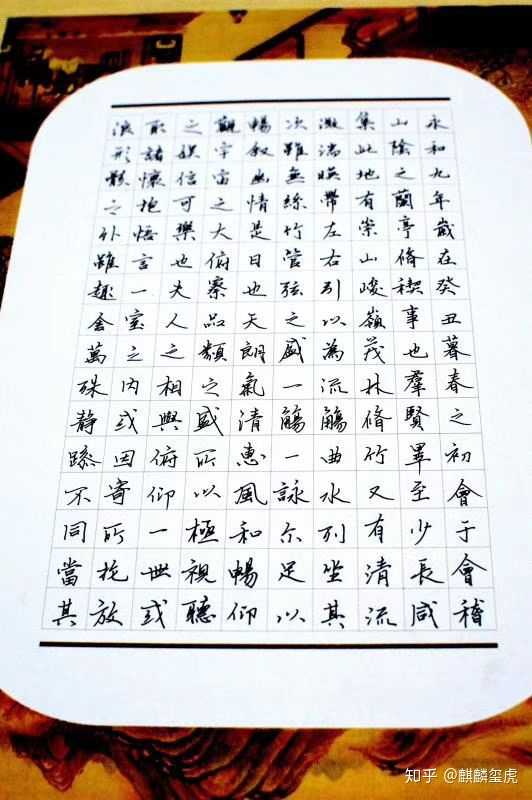 永和九年歲在癸丑暮春之初會于會稽
山陰之蘭亭脩稧事也羣賢畢至少長咸
集此地有崇山峻嶺茂林脩竹又有清流
激湍暎帶左右引以為流觴曲水列坐其
次雖無絲竹管弦之盛一觴一詠亦足以
暢叙幽情是日也天朗氣清惠風和暢仰
觀宇宙之大俯察品類之盛所以極視聽
之娱信可樂也夫人之相與俯仰一世或
取諸懷抱悟言一室之内或因寄所托放
浪形骸之外雖趣舍萬殊静躁不同當其
知乎 @麒麟玺虎